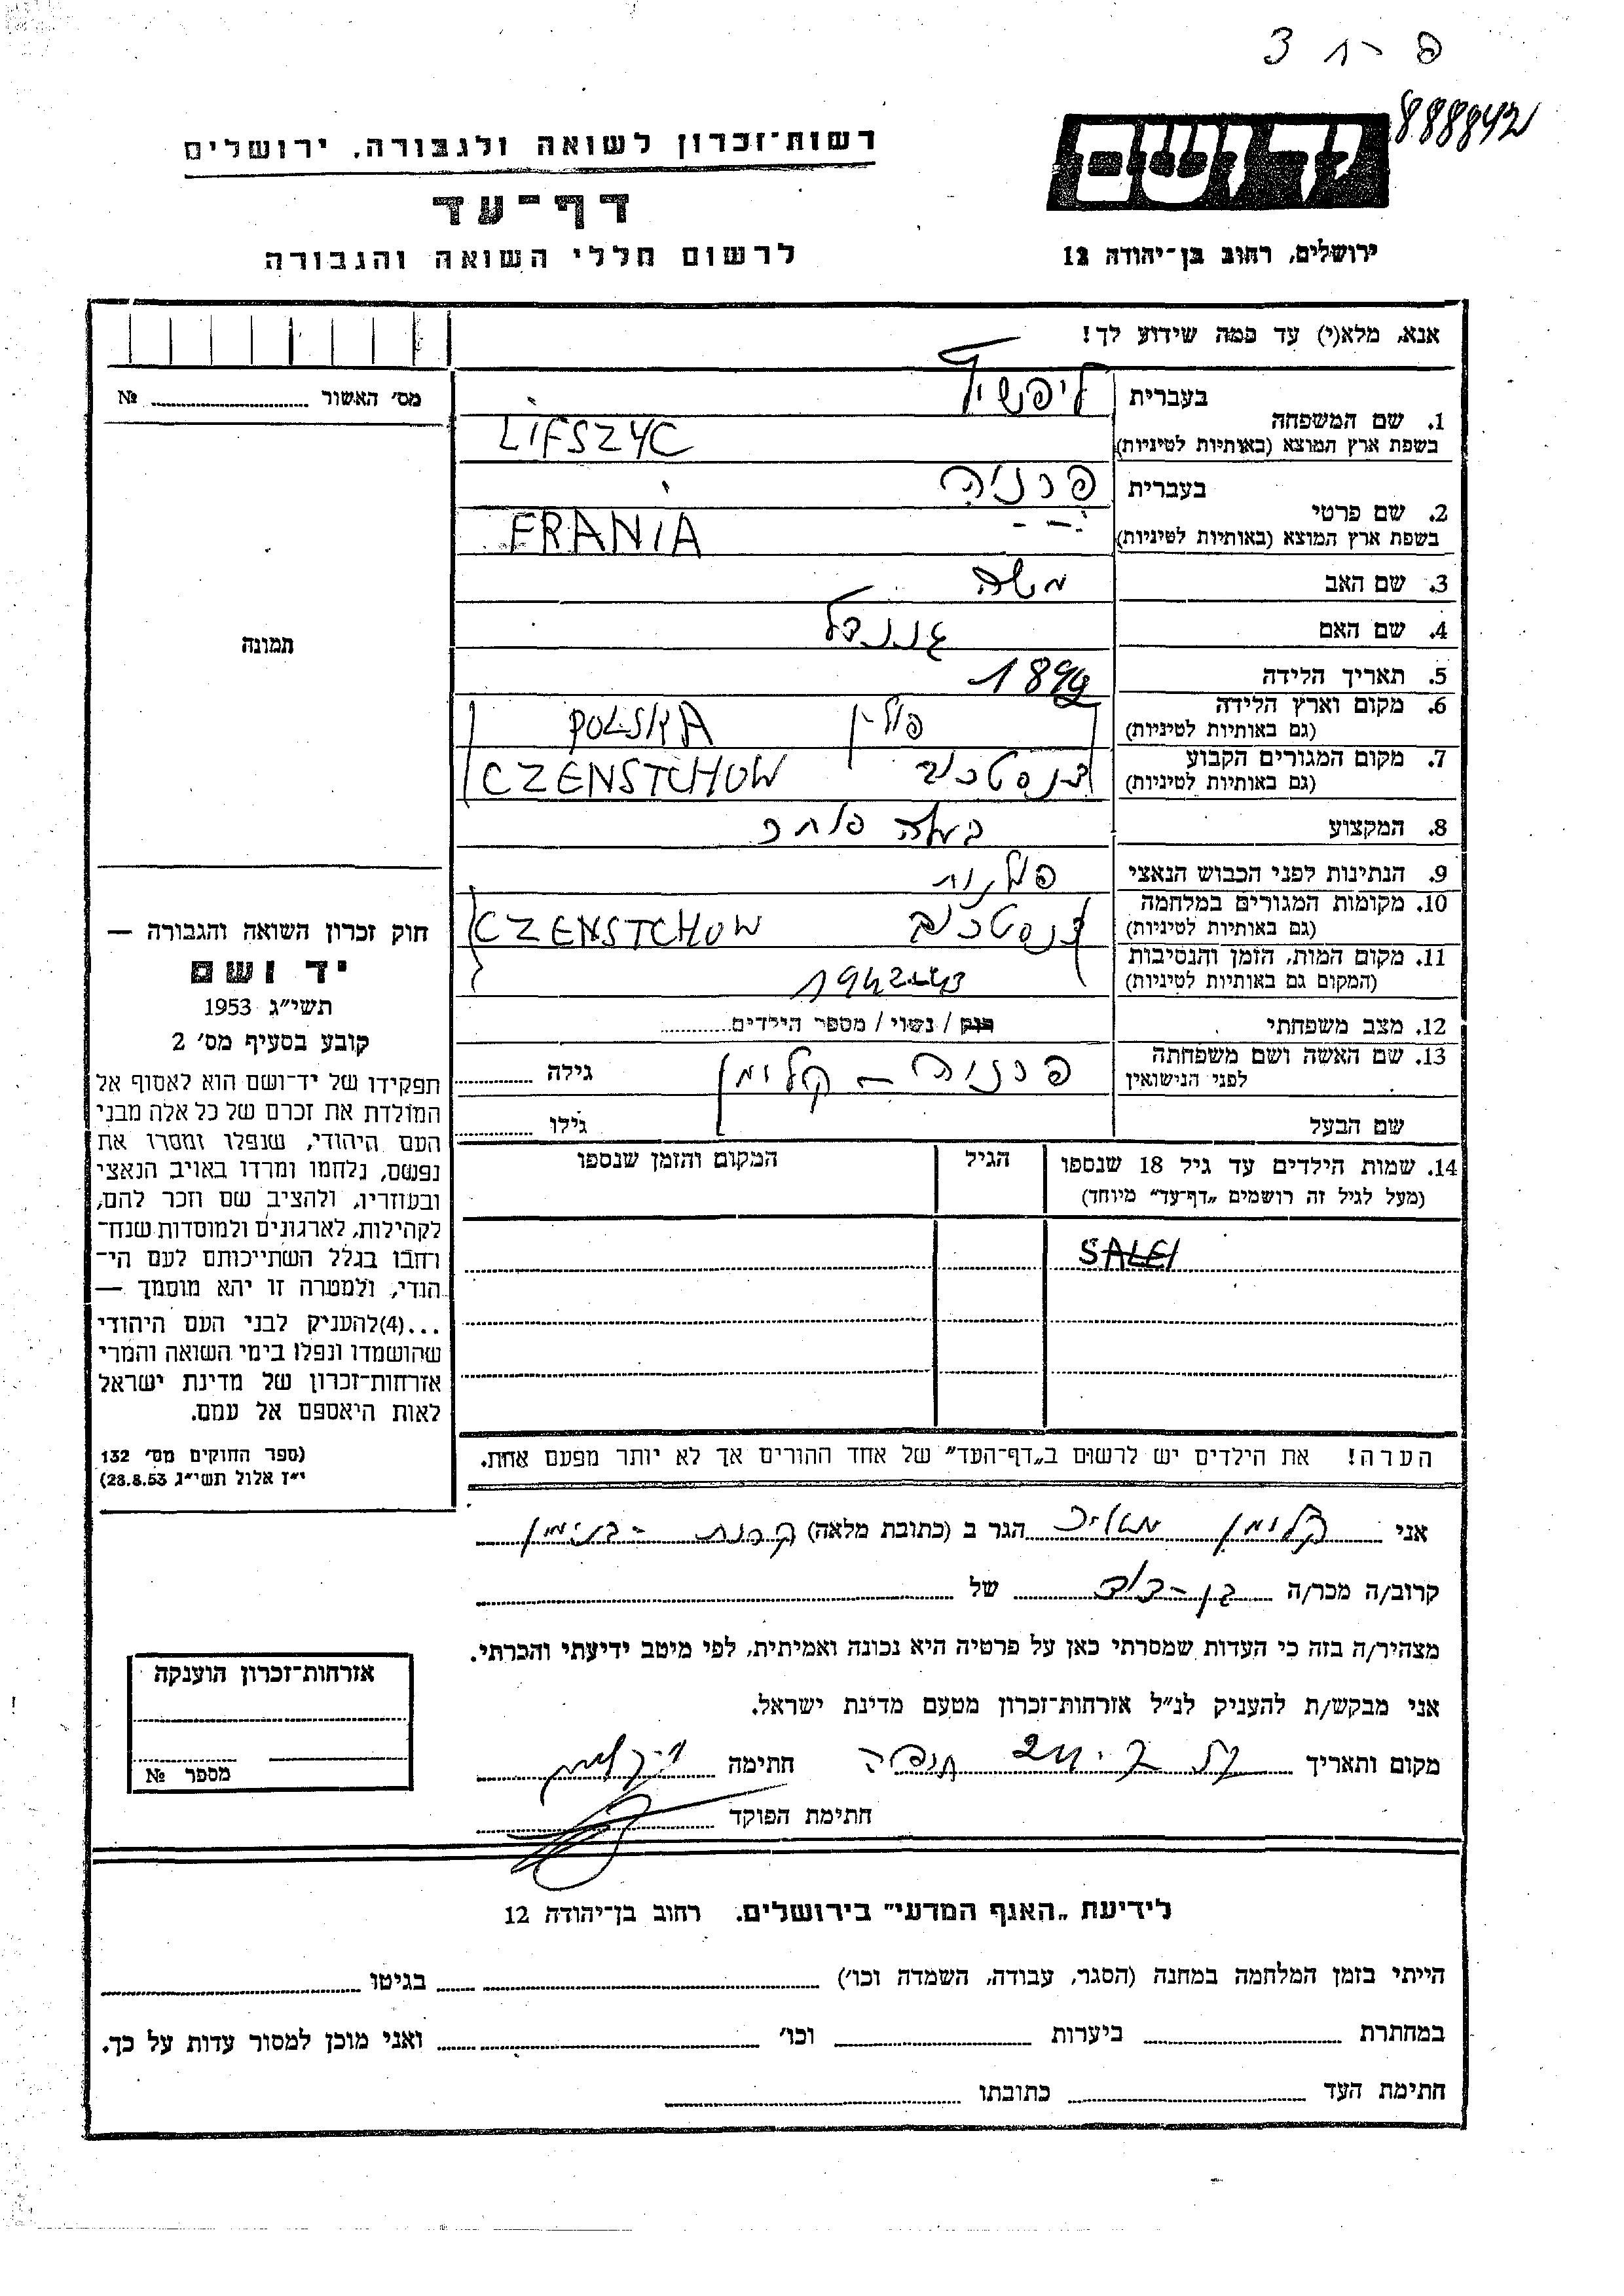 888842
יד ושם
רשות־זכרון לשואה ולגבורה, ירושלים
דף־עד
לרשום חללי השואה והגבורה
ירושלים, רחוב בן־יהודה 12
אנא, מלא(י) עד כמה שידוע לך!
מס׳ האשור №
תמונה
1. שם המשפחה
בעברית ליפשיץ
בשפת ארץ המוצא (באותיות לטיניות) LIFSZYC
2. שם פרטי
בעברית פרניה
בשפת ארץ המוצא (באותיות לטיניות) FRANIA
3. שם האב משה
4. שם האם
5. תאריך הלידה
6. מקום וארץ הלידה
(גם באותיות לטיניות) פולין POLSKA
7. מקום המגורים הקבוע
(גם באותיות לטיניות) צנסטכוב CZENSTCHOW
8. המקצוע
9. הנתינות לפני הכבוש הנאצי פולנית
10. מקומות המגורים במלחמה
(גם באותיות לטיניות) צנסטכוב CZENSTCHOW
11. מקום המות, הזמן והנסיבות
(המקום גם באותיות לטיניות) 1942-43
12. מצב משפחתי רוק / נשוי / מספר הילדים
13. שם האשה ושם משפחתה
לפני הנישואין פרניה – קלומן גילה
שם הבעל גילו
14. שמות הילדים עד גיל 18 שנספו
(מעל לגיל זה רושמים „דף־עד” מיוחד)
הגיל
המקום והזמן שנספו
SALEI
הערה! את הילדים יש לרשום ב„דף־העד” של אחד ההורים אך לא יותר מפעם אחת.
חוק זכרון השואה והגבורה —
יד ושם
תשי״ג 1953
קובע בסעיף מס׳ 2
תפקידו של יד־ושם הוא לאסוף אל
המולדת את זכרם של כל אלה מבני
העם היהודי, שנפלו ומסרו את
נפשם, נלחמו ומרדו באויב הנאצי
ובעוזריו, ולהציב שם וזכר להם,
לקהילות, לארגונים ולמוסדות שנח־
רחבו בגלל השתייכותם לעם הי־
הודי, ולמטרה זו יהא מוסמך —
...(4)להעניק לבני העם היהודי
שהושמדו ונפלו בימי השואה והמרי
אזרחות־זכרון של מדינת ישראל
לאות היאספם אל עמם.
(ספר החוקים מס׳ 132
י״ז אלול תשי״ג 28.8.53)
אני קלומן מאיר הגר ב (כתובת מלאה) קרית - בנימין
קרוב/ה מכר/ה בן-דוד של
מצהיר/ה בזה כי העדות שמסרתי כאן על פרטיה היא נכונה ואמיתית, לפי מיטב ידיעתי והכרתי.
אני מבקש/ת להעניק לנ״ל אזרחות־זכרון מטעם מדינת ישראל.
מקום ותאריך חתימה
חתימת הפוקד
אזרחות־זכרון הוענקה
מספר №
לידיעת „האגף המדעי” בירושלים. רחוב בן־יהודה 12
הייתי בזמן המלחמה במחנה (הסגר, עבודה, השמדה וכו׳) בגיטו
במחתרת ביערות וכו׳ ואני מוכן למסור עדות על כך.
חתימת העד כתובתו